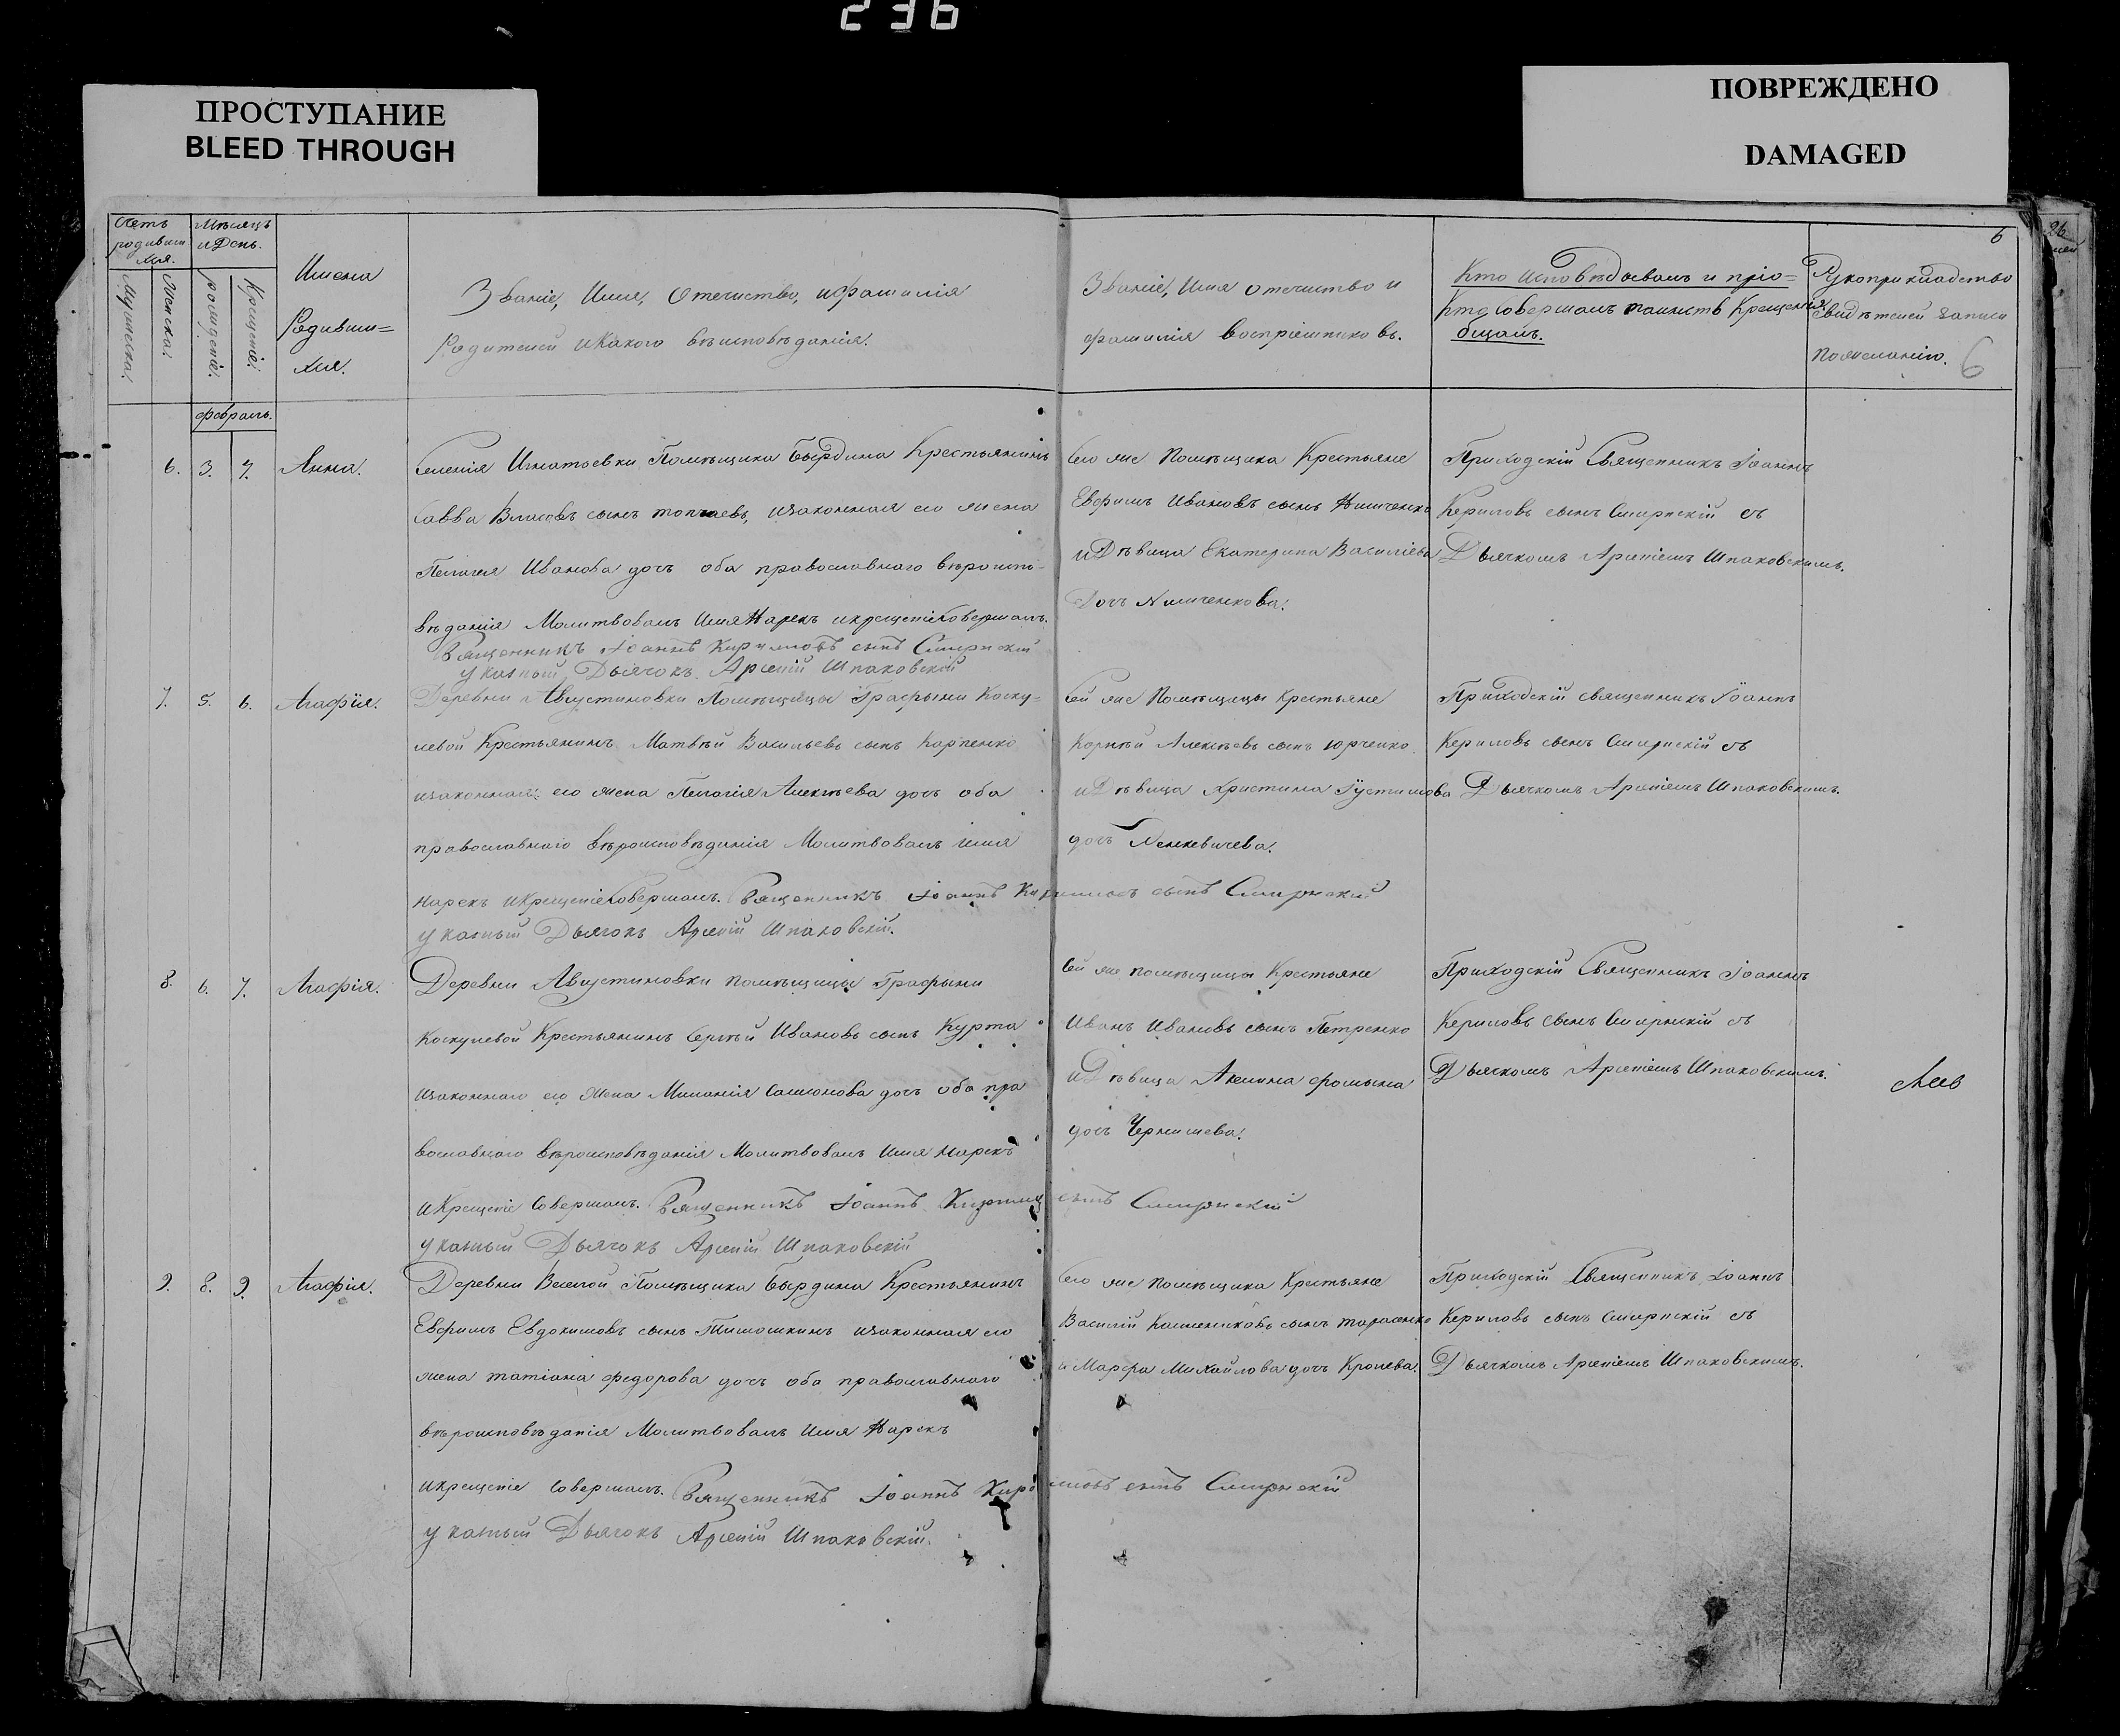 236
ПРОСТУПАНИЕ
BLEED THROUGH
ПОВРЕЖДЕНО
DAMAGED
26
6
6
Счетъ
родивших
ся.
Мужеска.
Женска.
Мѣсяцъ
и День.
рожденіе.
Крещеніе.
Имена
Родивши=
хся.
Званіе, Имя, Отечиство, ифамилія
Родителей иКакого вѣисповѣданія.
Званіе, Имя отечиство и
фамилія воспріемниковъ.
Кто исповѣдывалъ и пріо=
Кто совершалъ таинств Крещенія
бщалъ.
Рукоприкладство
свидѣтелей записи
пожеланію.
февраль.
6. 3. 7. Анна.
Селенія Игнатьевки Помѣщика Бырдина Крестьянинъ
Савва Власовъ сынъ изаконная его жена
Пелагея Иванова дочь оба православного вѣроиспо-
вѣданія Молитвовалъ Имя Нарекъ икрещеніе Совершалъ.
Священникъ Іоаннъ Кирилловъ сынъ Смирнскій
указный Дьячокъ Арсеній Шпаковскій
Его же Помѣщика Крестьяне
Ефимъ Ивановъ сынъ
иДѣвица Екатерина Василіева
Дочь
Приходскій Священникъ Іоаннъ
Кериловъ сынъ Смирнскій съ
Дьячкомъ Арсеніемъ Шпаковскимъ.
7. 5. 6. Агафія.
Деревни Августиновки Помѣщицы Графыни Коску-
левой Крестьянинъ Матвѣй Васильевъ сынъ Карпенко
изаконная его жена Пелагія Алексѣева дочь оба
православного вѣроисповѣданія Молитвовалъ имя
нарекъ икрещеніе Совершалъ. Священникъ Іоаннъ Кирилловъ сынъ Смирнскій
указный Дьячокъ Арсеній Шпаковскій.
Ей же Помѣщицы Крестьяне
Корнѣй Алексѣевъ сынъ Юрченко
иДѣвица Христина Іустинова
дочь
Приходскій священникъ Іоаннъ
Кериловъ сынъ Смирнскій съ
Дьячкомъ Арсеніемъ Шпаковскимъ.
8. 6. 7. Агафія.
Деревни Августиновки помѣщицы Графыни
Коскулевой Крестьянинъ Сергѣй Ивановъ сынъ Курта
изаконнаго его Жена Миланія Самсонова дочь оба пра
вославного вѣроисповѣданія Молитвовалъ Имя нарекъ
иКрещеніе Совершалъ. Священникъ Іоаннъ сынъ Смирнскій
указный Дьячокъ Арсеній Шпаковскій
Ей же помѣщицы Крестьяне
Иванъ Ивановъ сынъ Петренко
иДѣвица Акилина
дочь Чернишева.
Приходскій Священникъ Іоаннъ
Кериловъ сынъ Смирнскій съ
Дьячкомъ Арсеніемъ Шпаковскимъ.
9. 8. 9. Агафія.
Деревни Веселой Помѣщика Бырдина Крестьянинъ
Ефимъ Евдокимовъ сынъ Тимошкинъ изаконная его
жена татіана федорова дочь оба православного
вѣроисповѣданія Молитвовалъ Имя Нарекъ
икрещеніе Совершалъ. Священникъ Іоаннъ Кириловъ сынъ Смирнскій
указный Дьячокъ Арсеній Шпаковскій.
Его же помѣщика Крестьяне
Василій сынъ тарасенко
и Марфа Михайлова дочь
Приходскій Священникъ Іоаннъ
Кериловъ сынъ Смирнскій съ
Дьячкомъ Арсеніемъ Шпаковскимъ.